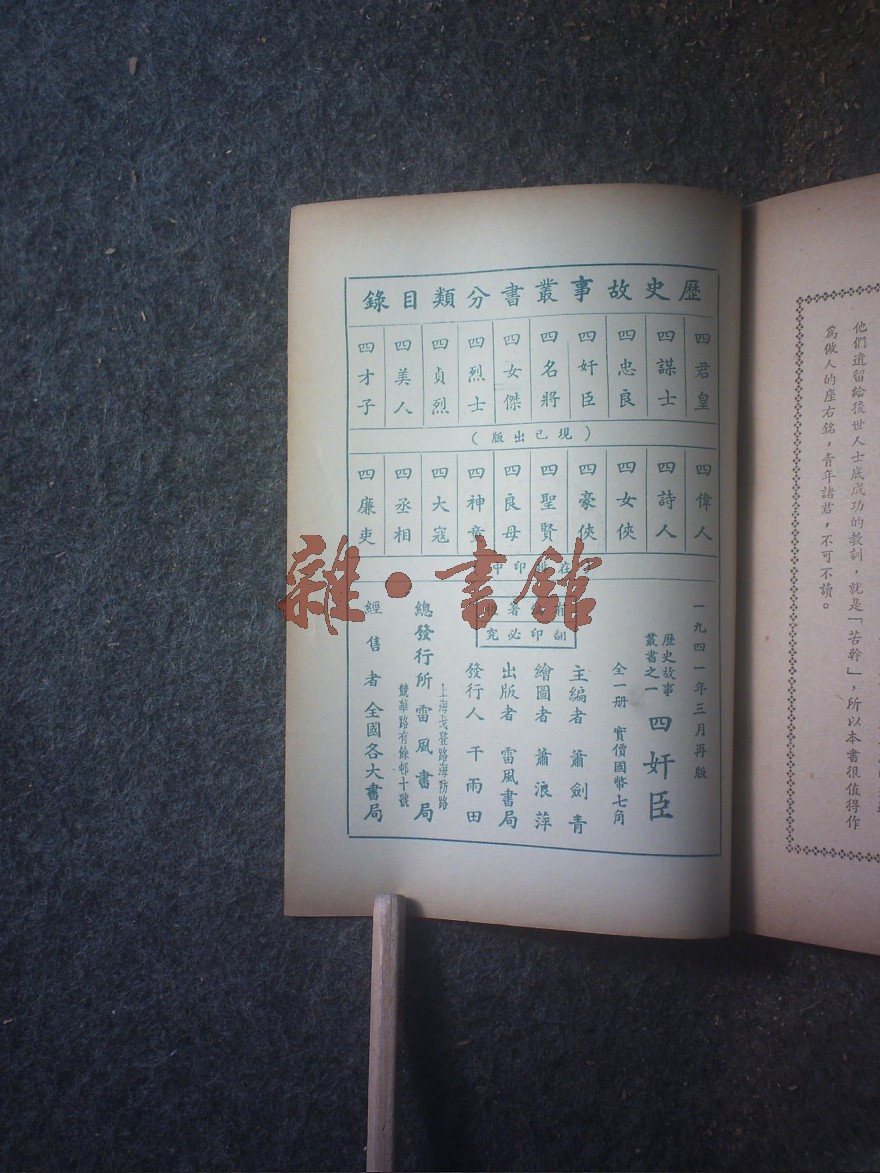 歷史故事叢書分類目錄
四君皇
四謀士
四忠良
四奸臣
四名將
四女傑
四烈士
四貞烈
四美人
四才子
(現已出版)
四偉人
四詩人
四女俠
四豪俠
四聖賢
四良母
四神童
四大寇
四丞相
四廉吏
在 印中
一九四一年三月再版
歷史故事
叢書之一
四奸臣
全一册 實價國幣七角
主編者 蕭劍青
繪圖者 蕭浪萍
出版者 雷風書局
發行人 千雨田
翻印必究
上海戈登路海防路
總發行所 雷風書局
競華路有餘邨十號
經售者 全國各大書局
雜·書館
他們遺留給後世人士底成功的教訓，就是「苦幹」，所以本書很值得作
爲做人的座右銘，青年諸君，不可不讀。